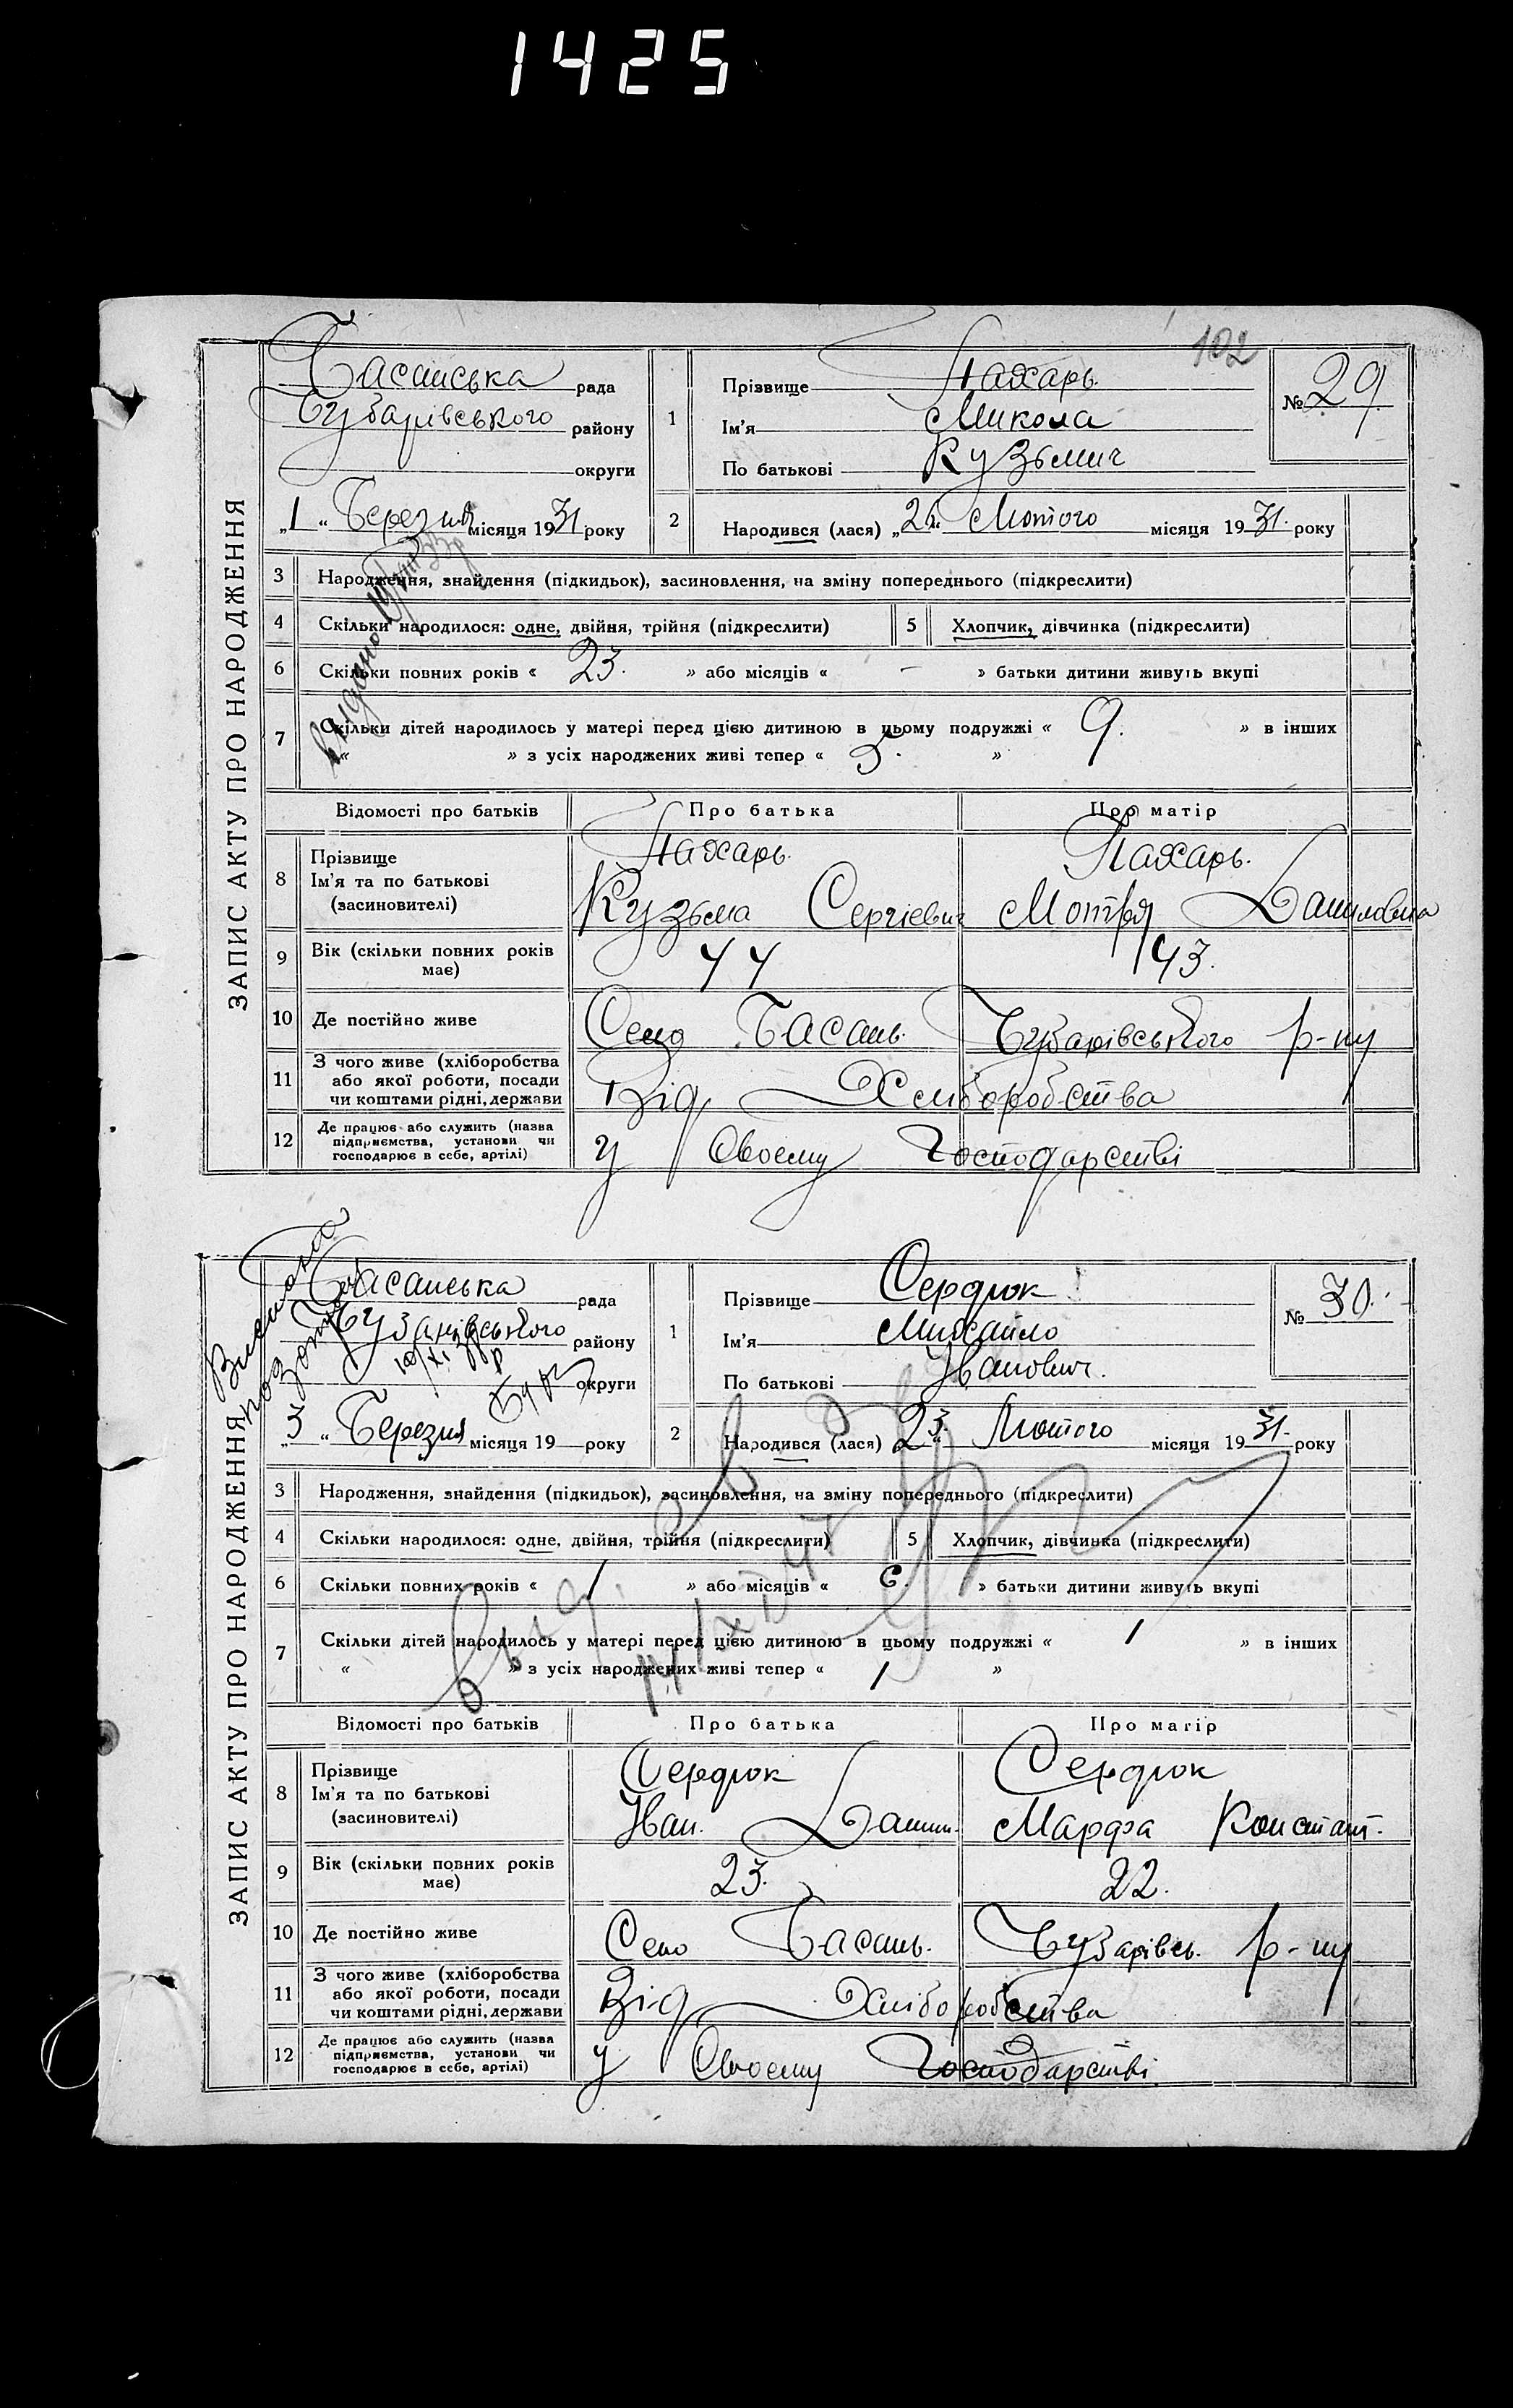 1425
102
ЗАПИС АКТУ ПРО НАРОДЖЕННЯ
Басанська рада
Чубарівського району
округи
„1“ Березня місяця 1931 року
1 Прізвище Пахарь.
Ім'я Микола
По батькові Кузьмич
№ 29
2 Народився (лася) „ “ Лютого місяця 1931. року
3 Народження, знайдення (підкидьок), засиновлення, на зміну попереднього (підкреслити)
4 Скільки народилося: одне, двійня, трійня (підкреслити) 5 Хлопчик, дівчинка (підкреслити)
6 Скільки повних років « 23. » або місяців « – » батьки дитини живуть вкупі
7 Скільки дітей народилось у матері перед цією дитиною в цьому подружжі « 9. » в інших
« » з усіх народжених живі тепер « 5. »
видано
Відомості про батьків Про батька Про матір
8 Прізвище Пахарь. Пахарь.
Ім'я та по батькові
(засиновителі) Кузьма Сергієвич Мотря Даниловна
9 Вік (скільки повних років має) 44 43.
10 Де постійно живе Село Басань. Чубарівського р-ну
11 З чого живе (хліборобства
або якої роботи, посади
чи коштами рідні, держави Від Хліборобства
12 Де працює або служить (назва
підприємства, установи чи
господарює в себе, артілі) У Своєму Господарстві
ЗАПИС АКТУ ПРО НАРОДЖЕННЯ
Басанська рада
Чубарівського району
округи
„3“ Березня місяця 19 року
1 Прізвище Сердюк
Ім'я Михайло
По батькові Іванович.
№ 30.
2 Народився (лася) „23.“ Лютого місяця 1931. року
3 Народження, знайдення (підкидьок), засиновлення, на зміну попереднього (підкреслити)
4 Скільки народилося: одне, двійня, трійня (підкреслити) 5 Хлопчик, дівчинка (підкреслити)
6 Скільки повних років « 1 » або місяців « 6. » батьки дитини живуть вкупі
7 Скільки дітей народилось у матері перед цією дитиною в цьому подружжі « 1 » в інших
« » з усіх народжених живі тепер « 1 »
Відомості про батьків Про батька Про матір
8 Прізвище Сердюк Сердюк
Ім'я та по батькові Іван. Данил. Марфа Констант.
(засиновителі)
9 Вік (скільки повних років має) 23. 22.
10 Де постійно живе Село Басань. Чубарівсь. р-ну
11 З чого живе (хліборобства
або якої роботи, посади
чи коштами рідні, держави Від Хліборобства
12 Де працює або служить (назва
підприємства, установи чи
господарює в себе, артілі) У Своєму Господарстві.